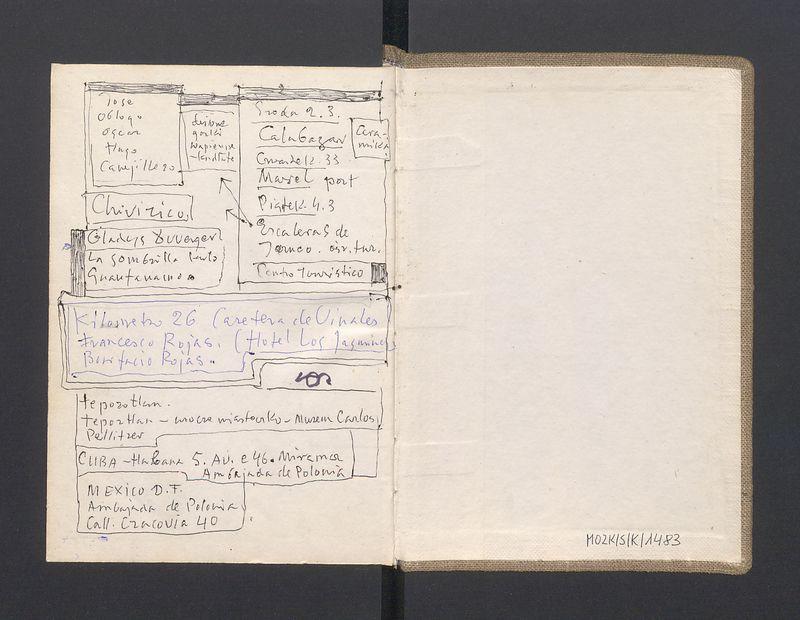 Jose
Oblogo
Oscar
Hugo
Camjillezo
gorki
Środa 2.3.
Calabazar
Cera-
mika
Czwartek. 33
Mariel port
Piątek. 4.3
Escaleras de
Jaruco.
Centro Touristico
Chivirico
Gladys Duverger
La Sombrilla
Guantanamo
Kilometro 26 Caretera de Vinales
Francesco Rojas. (Hotel Los Jasmines
Bonifacio Rojas.
tepozotlan.
tepoztlan – urocze miasteczko – Museum Carlos
Pellitzer
CUBA – Habana 5. Av. e 46. Miramar
Ambajada de Polonia
MEXICO D.F.
Ambajada de Polonia
Call. Cracovia 40
MOZK/S/K/1483